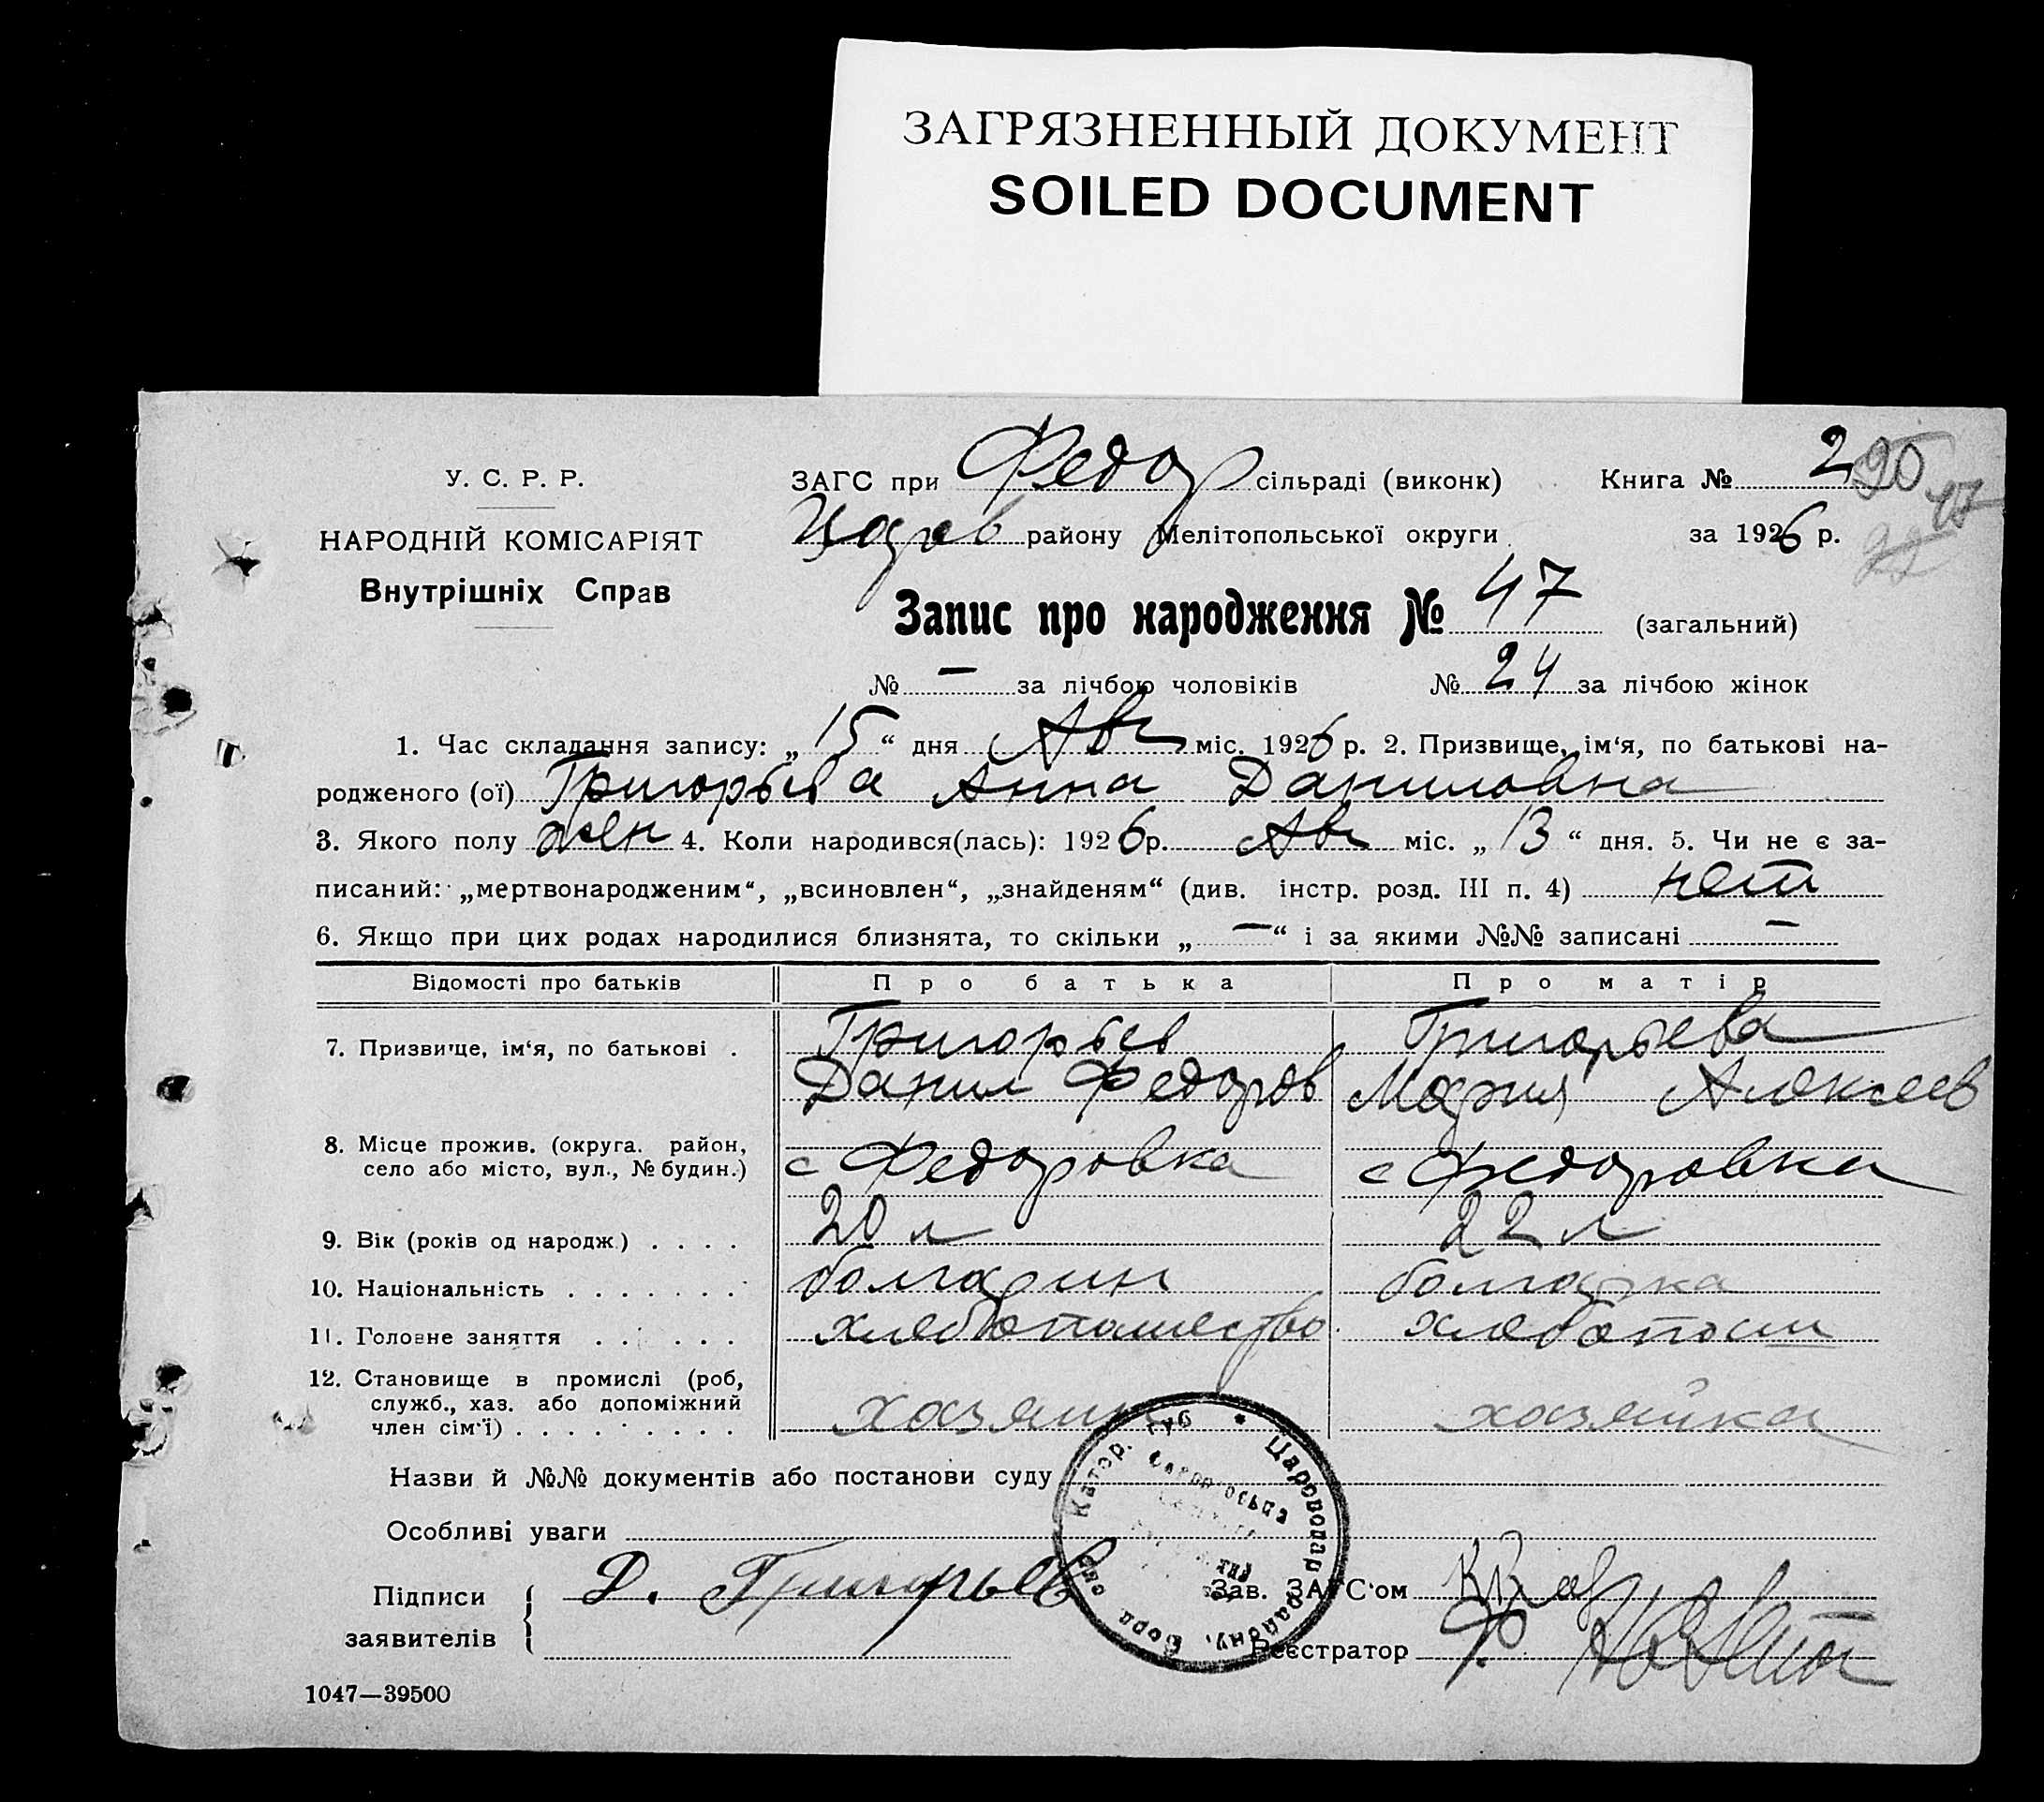 ЗАГРЯЗНЕННЫЙ ДОКУМЕНТ
SOILED DOCUMENT
У. С. Р. Р.
НАРОДНІЙ КОМІСАРІЯТ
Внутрішніх Справ
ЗАГС при Федор сільраді (виконк) Книга № 2
Царев району Мелітопольської округи за 1926 р.
Запис про народження № 47 (загальний)
№ — за лічбою чоловіків № 24 за лічбою жінок
1. Час складання запису: „ 15 “ дня Авг міс. 1926 р. 2. Призвище, ім‘я, по батькові на-
родженого (ої) Григорьева Анна Даниловна
3. Якого полу жен 4. Коли народився(лась): 1926 р. Авг міс. „ 13 “ дня. 5. Чи не є за-
писаний: „мертвонародженим“, „всиновлен“, „знайденям“ (див. інстр. розд. III п. 4) нет
6. Якщо при цих родах народилися близнята, то скільки „ — “ і за якими №№ записані —
Відомості про батьків Про батька Про матір
7. Призвище, ім‘я, по батькові . Григорьев Григорьева
Данил Федоров Мария Алексеев
8. Місце прожив. (округа. район, село або місто, вул., № будин.) с Федоровка с Федоровка
9. Вік (років од народж.) . . . . 20 л 22 л
10. Національність . . . . . . . болгарин болгарка
11. Головне заняття . . . . . . хлебопашество хлебопаш
12. Становище в промислі (роб, служб., хаз. або допоміжний член сім‘ї) . . . . . . . . . хозяин хозяйка
Назви й №№ документів або постанови суду
Особливі уваги
Підписи
заявителів
Д. Григорьев
Зав. ЗАГС‘ом
Реєстратор
1047—39500